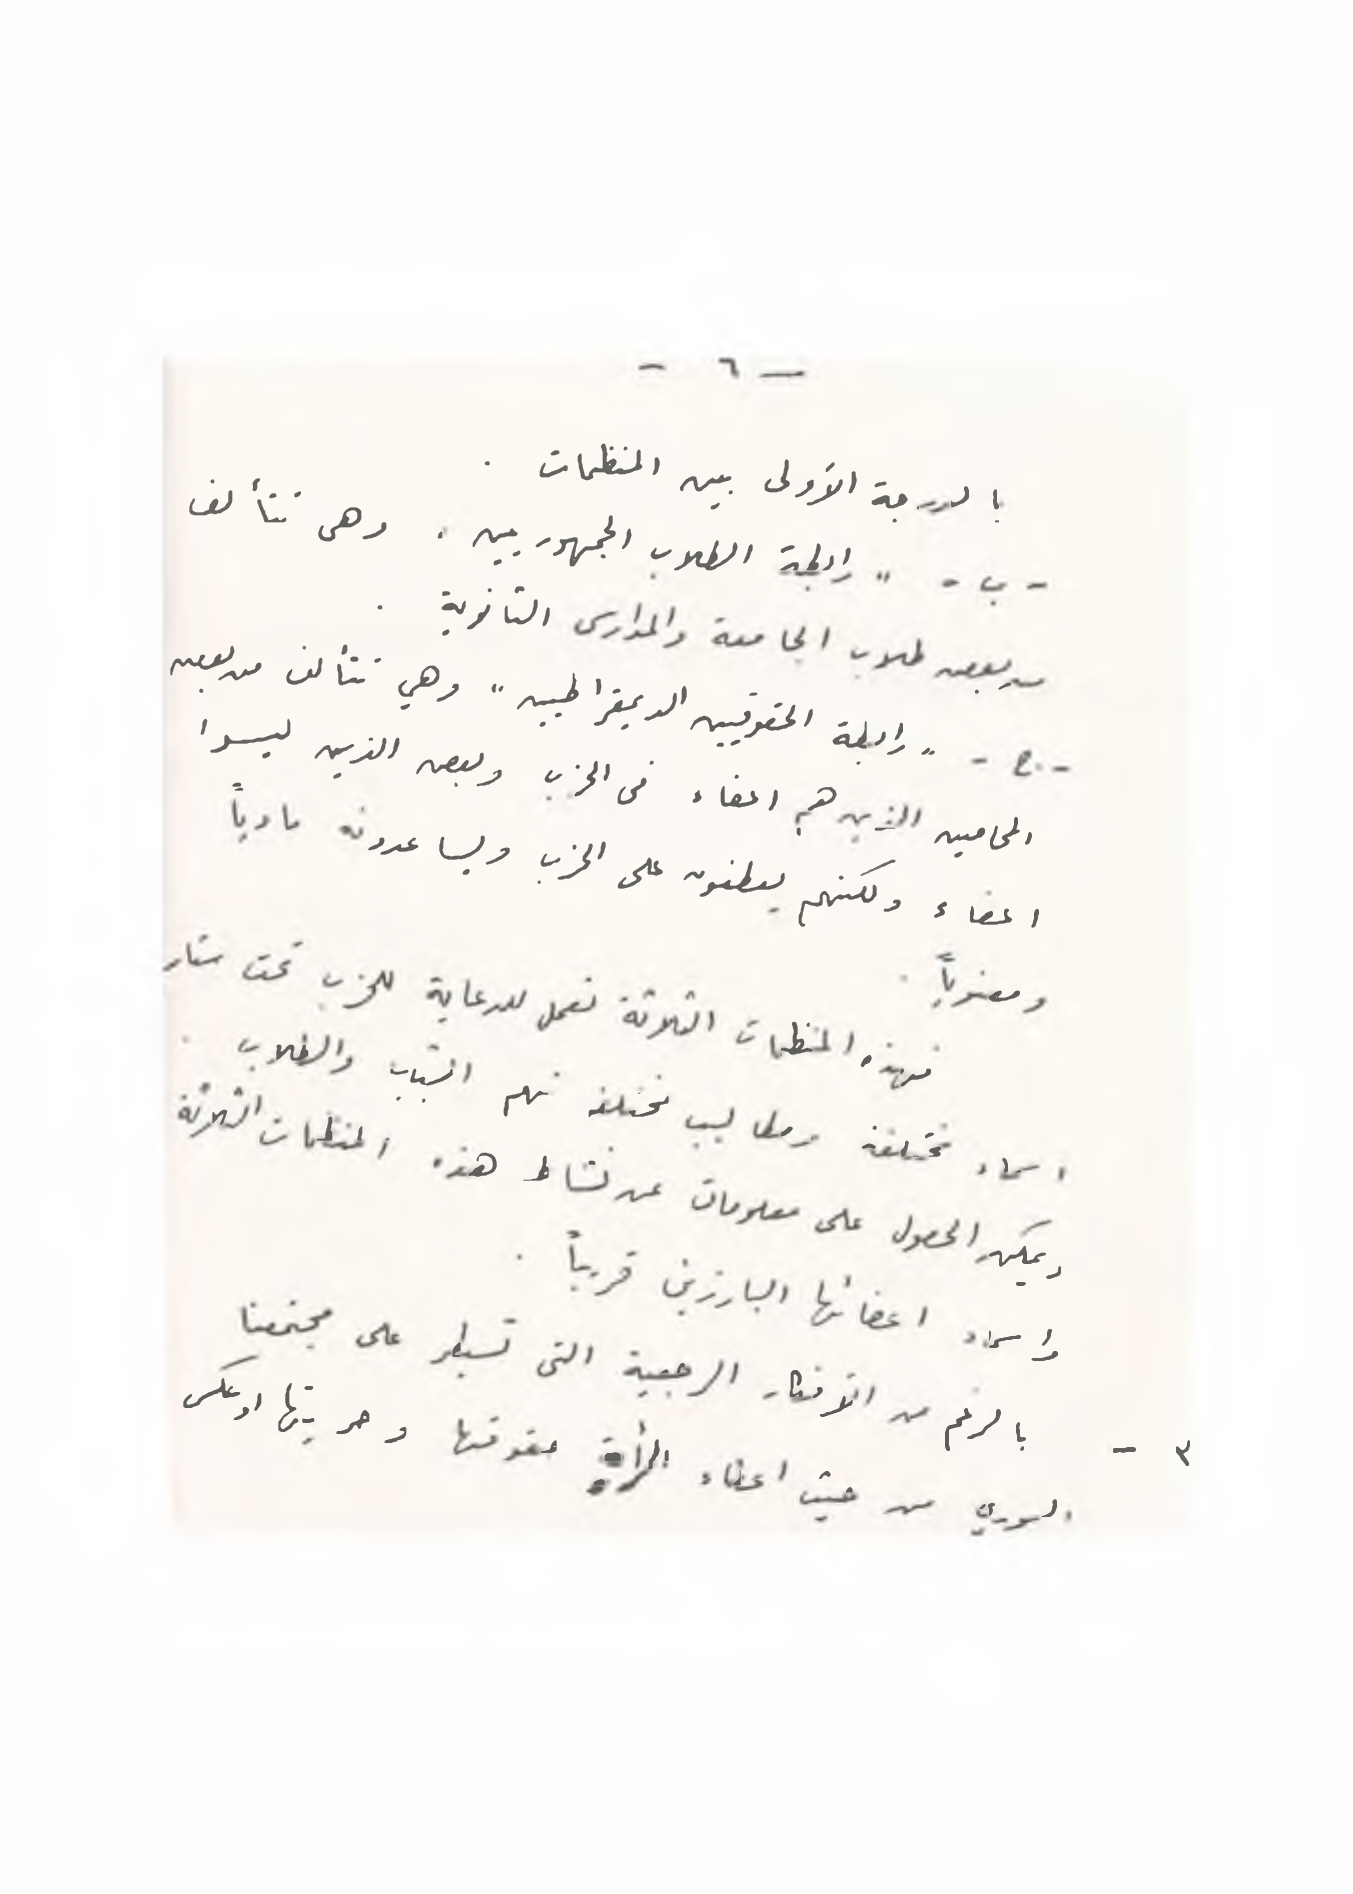 — ٦ -
بالدرجة الأولى بين المنظمات .
- ب - " رابطة الطلاب الجمهوريين . وهي تتألف
من بعض طلاب الجامعة والمدارس الثانوية .
- ج - " رابطة الحقوقيين الديمقراطيين " وهي تتألف من بعض
المحامين الذين هم اعضاء في الحزب وبعض الذين ليسوا
اعضاء ولكنهم يعطفون على الحزب ويساعدونه مادياً
ومعنوياً .
فهذه المنظمات الثلاثة تعمل للدعاية للحزب تحت ستار
اسماء مختلفة ومطاليب مختلفة تهم الشباب والطلاب .
ويمكن الحصول على معلومات عن نشاط هذه المنظمات الثلاثة
واسماء اعضائها البارزين قريباً .
٣ - بالرغم من الأفكار الرجعية التي تسيطر على مجتمعنا
السوري من حيث اعطاء المرأة حقوقها وحريتها او عكس